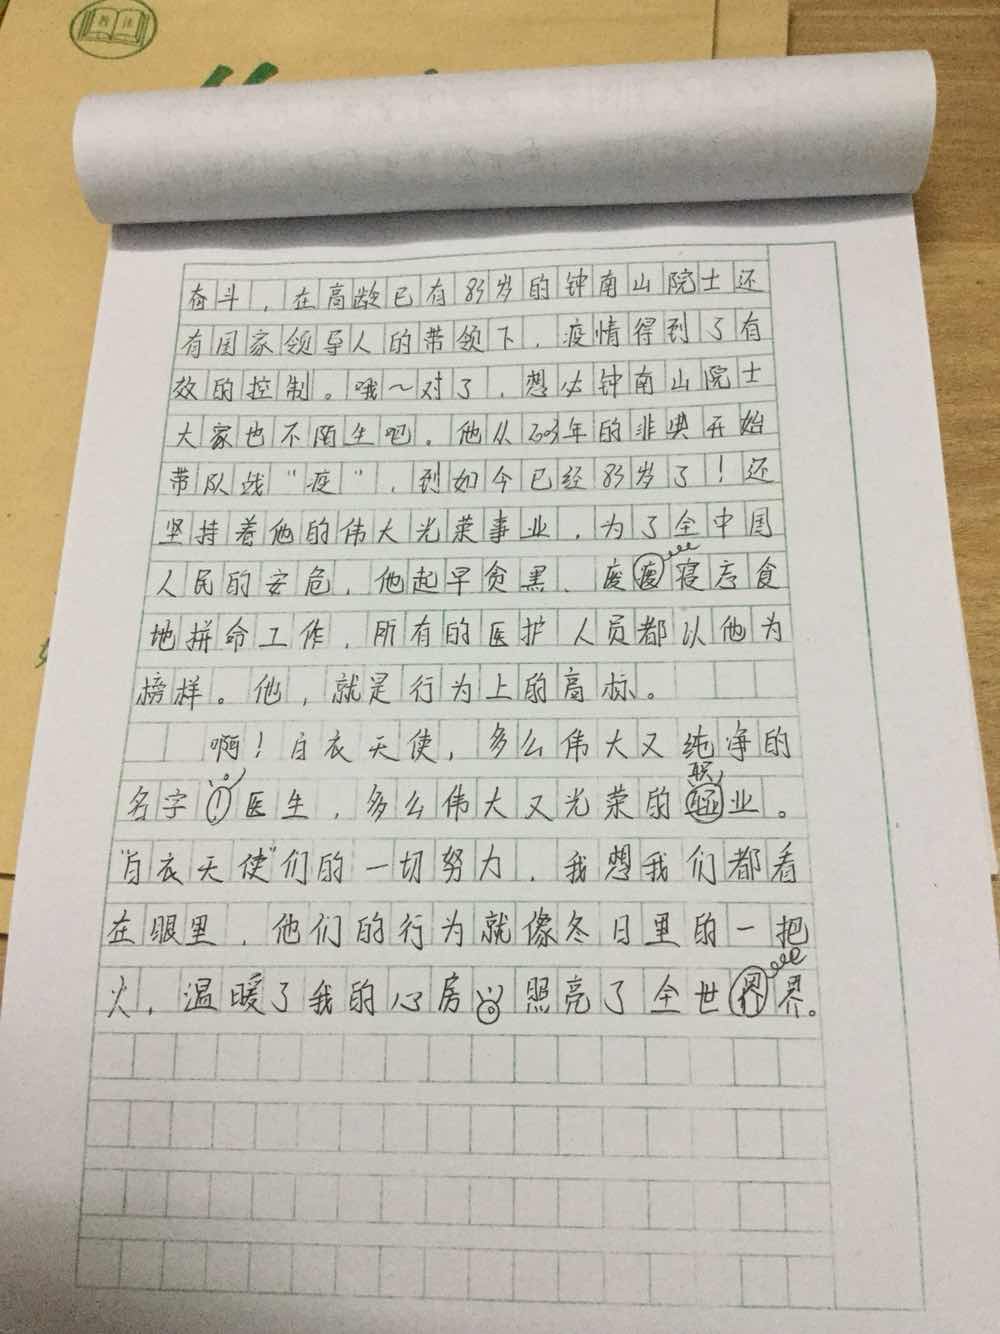 奋斗，在高龄已有83岁的钟南山院士还
有国家领导人的带领下，疫情得到了有
效的控制。哦～对了，想必钟南山院士
大家也不陌生吧。他从2003年的非典开始
带队战“疫”，到如今已经83岁了！还
坚持着他的伟大光荣事业，为了全中国
人民的安危，他起早贪黑、废寝忘食
地拼命工作，所有的医护人员都以他为
榜样。他，就是行为上的高标。
啊！白衣天使，多么伟大又纯净的
名字！医生，多么伟大又光荣的职业。
“白衣天使”们的一切努力，我想我们都看
在眼里，他们的行为就像冬日里的一把
火，温暖了我的心房，照亮了全世界。